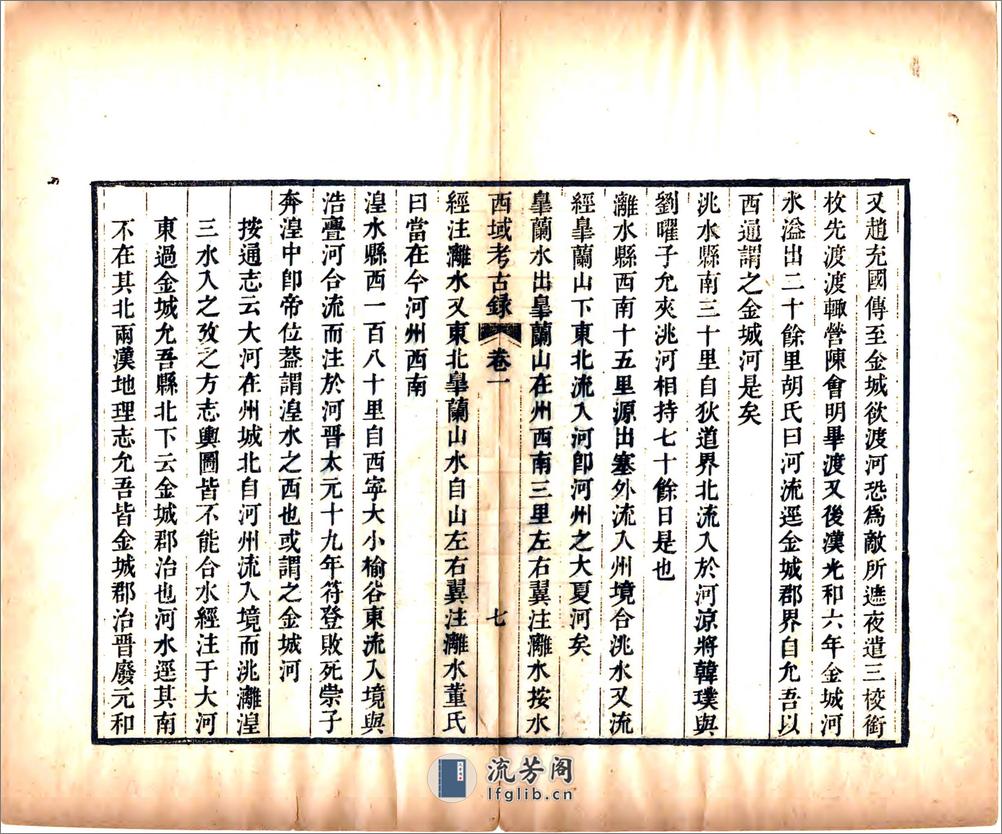 又趙充國傳至金城欲渡河恐為敵所遮夜遣三校銜
枚先渡渡輒營陳會明畢渡又後漢光和六年金城河
水溢出二十餘里胡氏曰河流逕金城郡界自允吾以
西通謂之金城河是矣
洮水縣南三十里自狄道界北流入於河涼將韓璞與
劉曜子允夾洮河相持七十餘日是也
灕水縣西南十五里源出塞外流入州境合洮水又流
經臯蘭山下東北流入河卽河州之大夏河矣
臯蘭水出臯蘭山在州西南三里左右翼注灕水按水
西域考古錄 卷一 七
經注灕水又東北臯蘭山水自山左右翼注灕水董氏
曰當在今河州西南
湟水縣西一百八十里自西寧大小榆谷東流入境與
浩亹河合流而注於河晉太元十九年符登敗死崇子
奔湟中卽帝位葢謂湟水之西也或謂之金城河
按通志云大河在州城北自河州流入境而洮灕湟
三水入之攷之方志輿圖皆不能合水經注于大河
東過金城允吾縣北下云金城郡治也河水逕其南
不在其北兩漢地理志允吾皆金城郡治晉廢元和
流芳阁
lfglib.cn